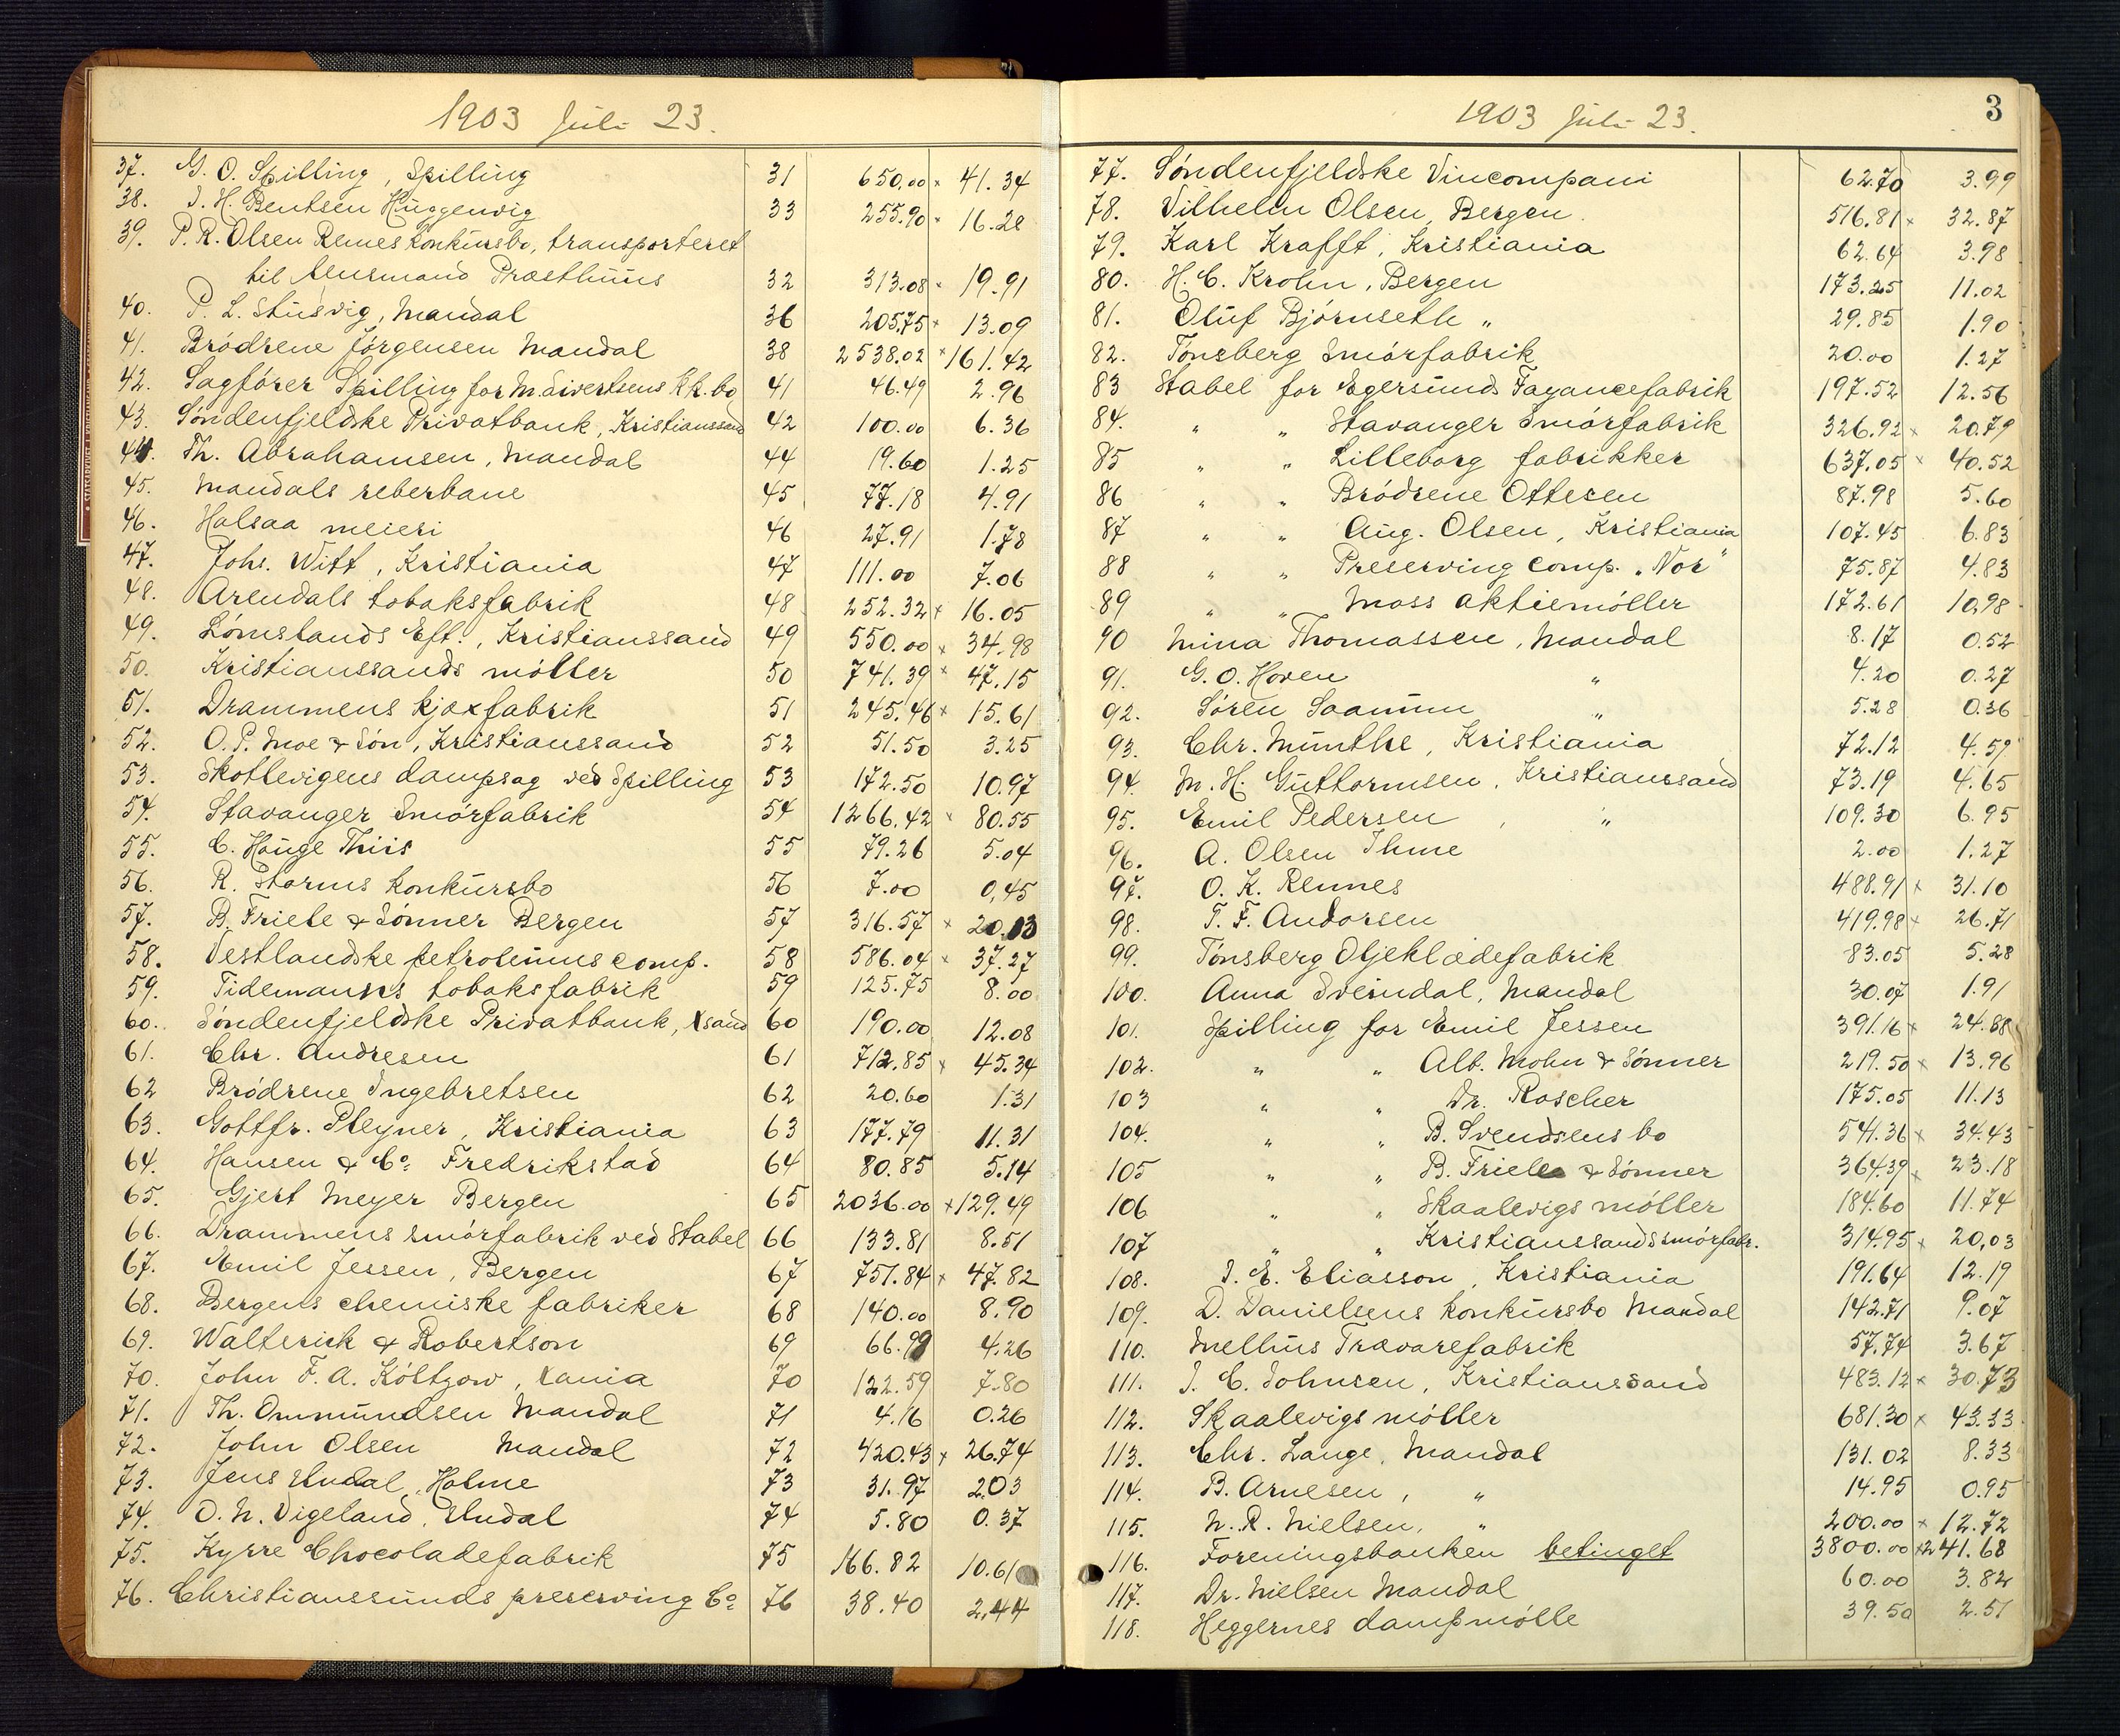 1903 Juli 23.
37. G. O. Spilling, Spilling 31 650.00 x 41.34
38. J. H. Bentsen Huggenvig 33 255.90 x 16.28
39. P. R. Olsen Remes konkursbo, transporteret
til lensmand Præsthuus 32 313.08 x 19.91
40. P. L. Stusvig, Mandal 36 205.75 x 13.09
41. Brödrene Jörgensen Mandal 38 2538.02 x 161.42
42. Sagförer Spilling for M. Sivertsens kk. bo 41 46.49 2.96
43. Söndenfjeldske Privatbank, Kristianssand 42 100.00 6.36
44. Th. Abrahamsen, Mandal 44 19.60 1.25
45. Mandals reberbane 45 77.18 4.91
46. Halsaa meieri 46 27.91 1.78
47. Johs. Witt, Kristiania 47 111.00 7.06
48. Arendals tobaksfabrik 48 252.32 x 16.05
49. Lömslands Eft., Kristianssand 49 550.00 x 34.98
50. Kristianssands möller 50 741.39 x 47.15
51. Drammens kjæxfabrik 51 245.46 x 15.61
52. O. P. Moe & Sön, Kristianssand 52 51.50 3.25
53. Skottevigens dampsag ved Spilling 53 172.50 10.97
54. Stavanger Smörfabrik 54 1266.42 x 80.55
55. C. Hauge Thiis 55 79.26 5.04
56. R. Storms konkursbo 56 7.00 0,45
57. B. Friele & Sönner Bergen 57 316.57 x 20.13
58. Vestlandske petroleums comp. 58 586.04 x 37.27
59. Tidemanns tobaksfabrik 59 125.75 8.00
60. Söndenfjeldske Privatbank, Xsand 60 190.00 12.08
61. Chr. Andresen 61 712.85 x 45.34
62 Brödrene Ingebretsen 62 20.60 1.31
63. Gottfr. Pleyner, Kristiania 63 177.79 11.31
64. Hansen & Co. Fredrikstad 64 80.85 5.14
65. Gjert Meyer Bergen 65 2036.00 x 129.49
66. Drammens smörfabrik ved Stabel 66 133.81 8.51
67. Emil Jessen, Bergen 67 751.84 x 47.82
68. Bergens chemiske fabriker 68 140.00 8.90
69. Walterick & Robertson 69 66.99 4.26
70. John F. A. Költzow, Xania 70 122.59 7.80
71. Th. Ommundsen Mandal 71 4.16 0.26
72. John Olsen Mandal 72 420.43 x 26.74
73. Jens Undal, Holme 73 31.97 2.03
74. O. N. Vigeland, Undal 74 5.80 0.37
75. Kyrre Chocoladefabrik 75 166.82 10.61
76. Christianssunds preserving Co. 76 38.40 2,44
1903 Juli 23. 3
77. Söndenfjeldske Vincompani 62.70 3.99
78. Vilhelm Olsen, Bergen. 516.81 x 32.87
79. Karl Krafft, Kristiania 62.64 3.98
80. H. C. Krohn, Bergen 173.25 11.02
81. Oluf Björnseth „ 29.85 1.90
82. Tönsberg Smörfabrik 20.00 1.27
83 Stabel for Egersunds Fayancefabrik 197.52 12.56
84. „ „ Stavanger Smörfabrik 326.92 x 20.79
85 „ „ Lilleborg fabrikker 637.05 x 40.52
86 „ „ Brödrene Ottesen 87.98 5.60
87 „ „ Aug. Olsen, Kristiania 107.45 6.83
88 „ „ Preserving comp. „Nor" 75.87 4.83
89 „ „ Moss aktiemöller 172.61 10.98
90 Mina Thomassen, Mandal 8.17 0.52
91. G. O. Hoven „ 4.20 0.27
92. Sören Saanum „ 5.28 0.36
93. Chr. Munthe, Kristiania 72.12 4.59
94. M. H. Guttormsen, Kristianssand 73.19 4.65
95. Emil Pedersen, „ 109.30 6.95
96. A. Olsen Ihme 2.00 1.27
97. O. K. Rennes 488.91 x 31.10
98. T. F. Andorsen 419.98 x 26.71
99. Tönsberg Oljeklædefabrik 83.05 5.28
100. Anna Sveindal, Mandal 30.07 1.91
101. Spilling for Emil Jessen 391.16 x 24.88
102. „ „ Alb. Mohn & Sönner 219.50 x 13.96
103 „ „ Dr. Roscher 175.05 11.13
104. „ „ B. Svendsens bo 541.36 x 34.43
105 „ „ B. Friele & Sönner 364.39 x 23.18
106 „ „ Skaalevigs möller 184.60 11.74
107 „ „ Kristianssands smörfabr. 314.95 x 20,03
108. J. E. Eliasson, Kristiania 191.64 12.19
109. D. Danielsens konkursbo Mandal 142.71 9.07
110. Mellbus Trævarefabrik 57.74 3.67
111. J. C. Johnsen, Kristianssand 483.12 x 30.73
112. Skaalevigs möller 681.30 x 43.33
113. Chr. Lange, Mandal 131.02 8.33
114. B. Arnesen, „ 14.95 0.95
115. N. R. Nielsen, „ 200.00 x 12.72
116. Foreningsbanken betinget 3800.00 x 241.68
117. Dr. Nielsen Mandal 60.00 3.82
118. Heggernes dampmölle 39.50 2.51